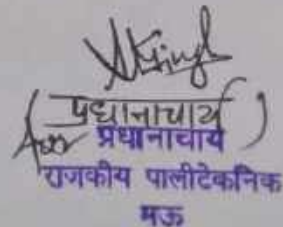 (प्रधानाचार्य)
प्रधानाचार्य
राजकीय पालीटेकनिक
मऊ